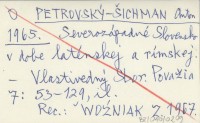 PETROVSKÝ-ŠICHMAN Anton
1965. Severozápadné Slovensko
v dobe laténskej a rímskej
- Vlastivedný zbor. Považia
7: 53-129, il.
Rec.: WOŹNIAK Z 1967.